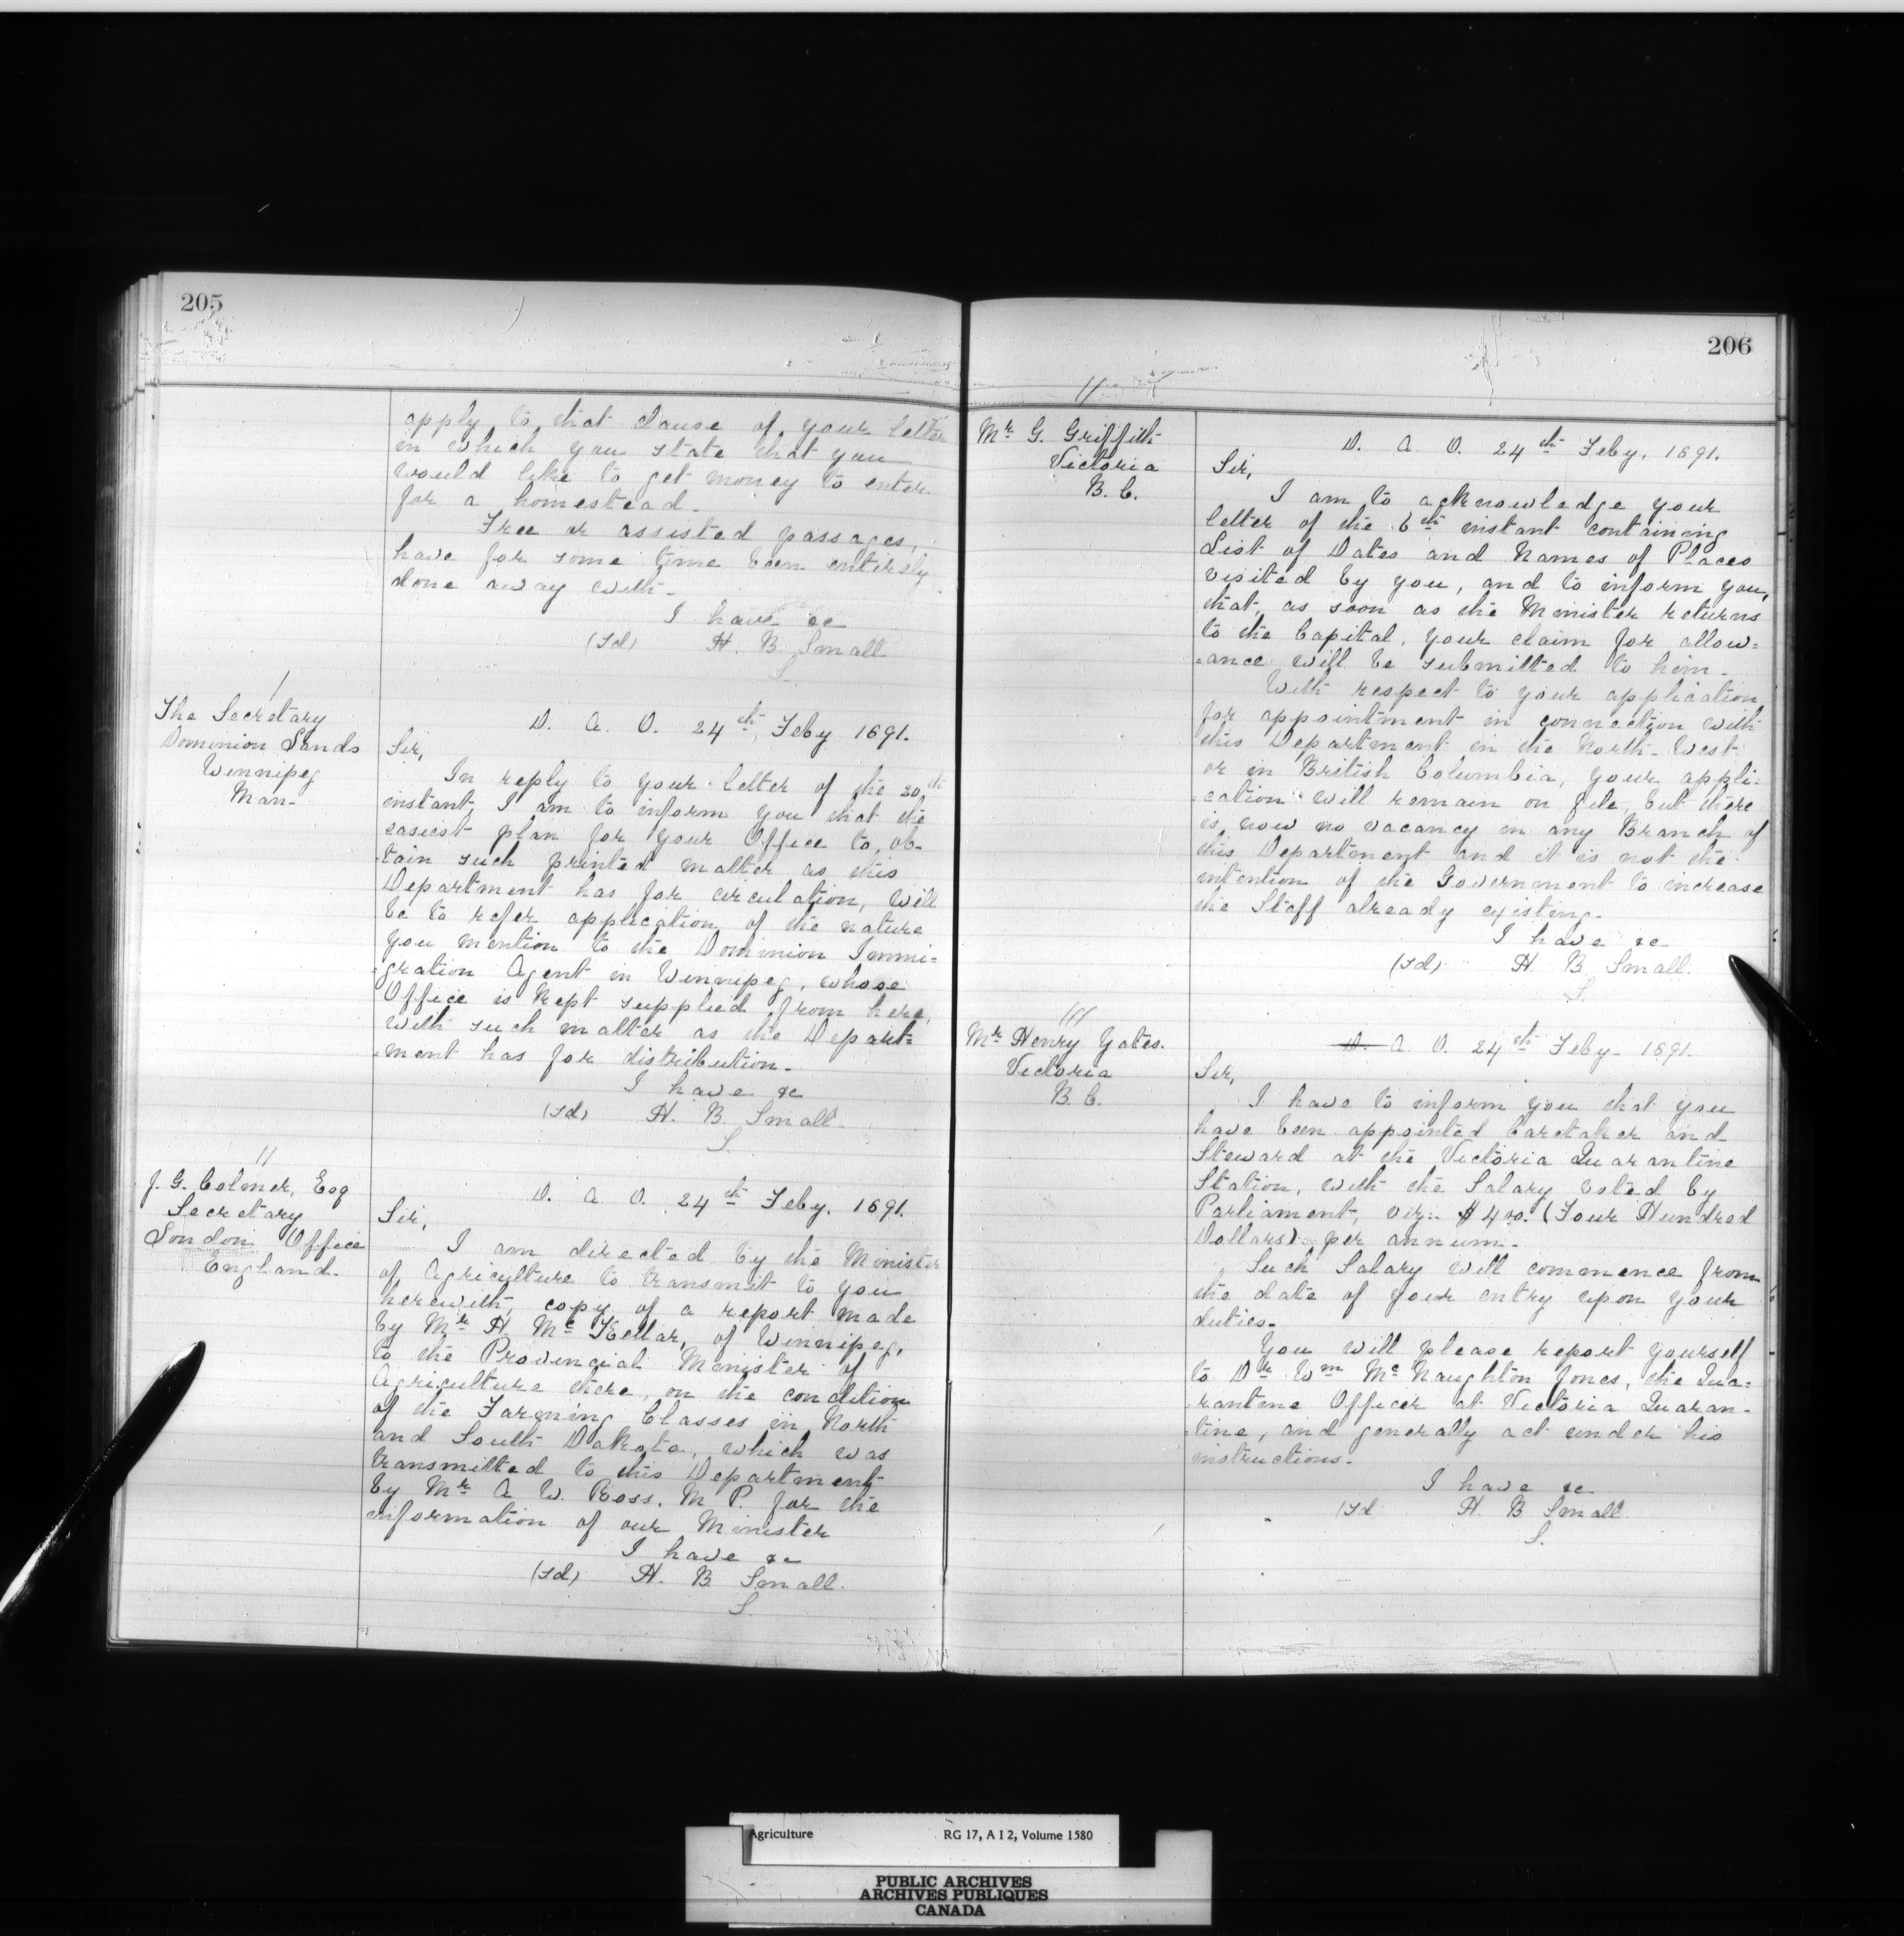 205
apply to that clause of your letter
in which you state that you
would like to get money to enter
for a homestead.
Free or assisted passages,
have for some time been entirely
done away with.
I have &c
(sd) H. B. Small
S.
The Secretary
Dominion Lands
Winnipeg
Man.
D. A. O. 24th Feby 1891.
Sir,
In reply to your letter of the 20th
instant, I am to inform you that the
easiest plan for your Office to ob-
-tain such printed matter as this
Department has for circulation, will
be to refer application of the nature
you mention to the Dominion Immi=
-gration Agent in Winnipeg, whose
Office is kept supplied from here,
with such matter as the Depart=
-ment has for distribution.
I have &c
(sd) H. B. Small.
S.
J. G. Colmer, Esq
Secretary
London Office
England.
D. A. O. 24th Feby. 1891.
Sir,
I am directed by the Minister
of Agriculture to transmit to you
herewith, copy of a report made
by Mr H. McKellar, of Winnipeg,
to the Provincial Minister of
Agriculture there, on the condition
of the Farming Classes in North
and South Dakota, which was
transmitted to this Department
by Mr A. W. Ross. M. P. for the
information of our Minister
I have &c
(sd) H. B. Small.
S.
206
Mr G. Griffith
Victoria
B. C.
D. A. O. 24th Feby. 1891.
Sir,
I am to acknowledge your
letter of the 6th instant containing
List of Dates and Names of Places
visited by you, and to inform you,
that, as soon as the Minister returns
to the Capital, your claim for allow=
-ance will be submitted to him.
With respect to your application
for appointment in connection with
this Department in the North-West
or in British Columbia, your appli=
-cation will remain on file, but there
is now no vacancy in any Branch of
this Department and it is not the
intention of the Government to increase
the Staff already existing.
I have &c
(sd) H. B. Small.
S.
Mr Henry Yates.
Victoria
B. C.
D. A. O. 24th Feby. 1891.
Sir,
I have to inform you that you
have been appointed Caretaker and
Steward at the Victoria Quarantine
Station, with the Salary voted by
Parliament, viz:. $400. (Four Hundred
Dollars) per annum.
Such Salary will commence from
the date of your entry upon your
duties.
You will please report yourself
to Dr Wm McNaughton Jones, the Qua=
-rantine Officer at Victoria Quaran-
-tine, and generally act under his
instructions.
I have &c
(sd H. B Small.
S.
Agriculture RG 17, A I 2, Volume 1580
PUBLIC ARCHIVES
ARCHIVES PUBLIQUES
CANADA